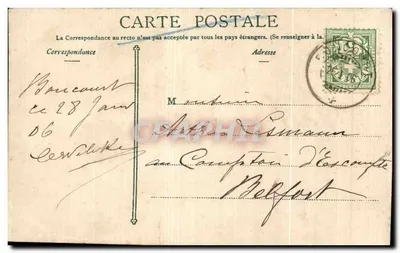 CARTE POSTALE
La Correspondance au recto n'est pas acceptée par tous les pays étrangers. (Se renseigner à la
Correspondance
Adresse
Boncourt
ce 28 Janv
06
M onsieur
au Comptoir d'Escompte
Belfort